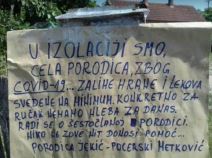 U IZOLACIJI SMO,
CELA PORODICA, ZBOG
COVID-19... ZALIHE HRANE I LEKOVA
SVEDENE NA MINIMUM. KONKRETNO ZA
RUČAK NEMAMO HLEBA ZA DANAS.
RADI SE O ŠESTOČLANOJ PORODICI.
NIKO NE ZOVE NIT DONOSI POMOĆ...
PORODICA JEKIĆ - POCERSKI METKOVIĆ